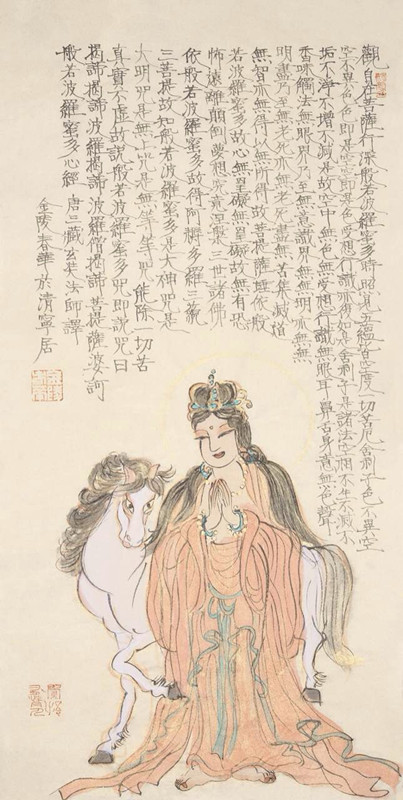 觀自在菩薩行深般若波羅蜜多時照見五蘊皆空度一切苦厄舍利子色不異空
空不異色色即是空空即是色受想行識亦復如是舍利子是諸法空相不生不滅不
垢不淨不增不減是故空中無色無受想行識無眼耳鼻舌身意無色聲
香味觸法無眼界乃至無意識界無無明亦無無
明盡乃至無老死亦無老死盡無苦集滅道
無智亦無得以無所得故菩提薩埵依般
若波羅蜜多故心無罣礙無罣礙故無有恐
怖遠離顛倒夢想究竟涅槃三世諸佛
依般若波羅蜜多故得阿耨多羅三藐
三菩提故知般若波羅蜜多是大神咒是
大明咒是無上咒是無等等咒能除一切苦
真實不虛故說般若波羅蜜多咒即說咒曰
揭諦揭諦波羅揭諦波羅僧揭諦菩提薩婆訶
般若波羅蜜多心經 唐三藏玄奘法師譯
金陵春華於清寧居